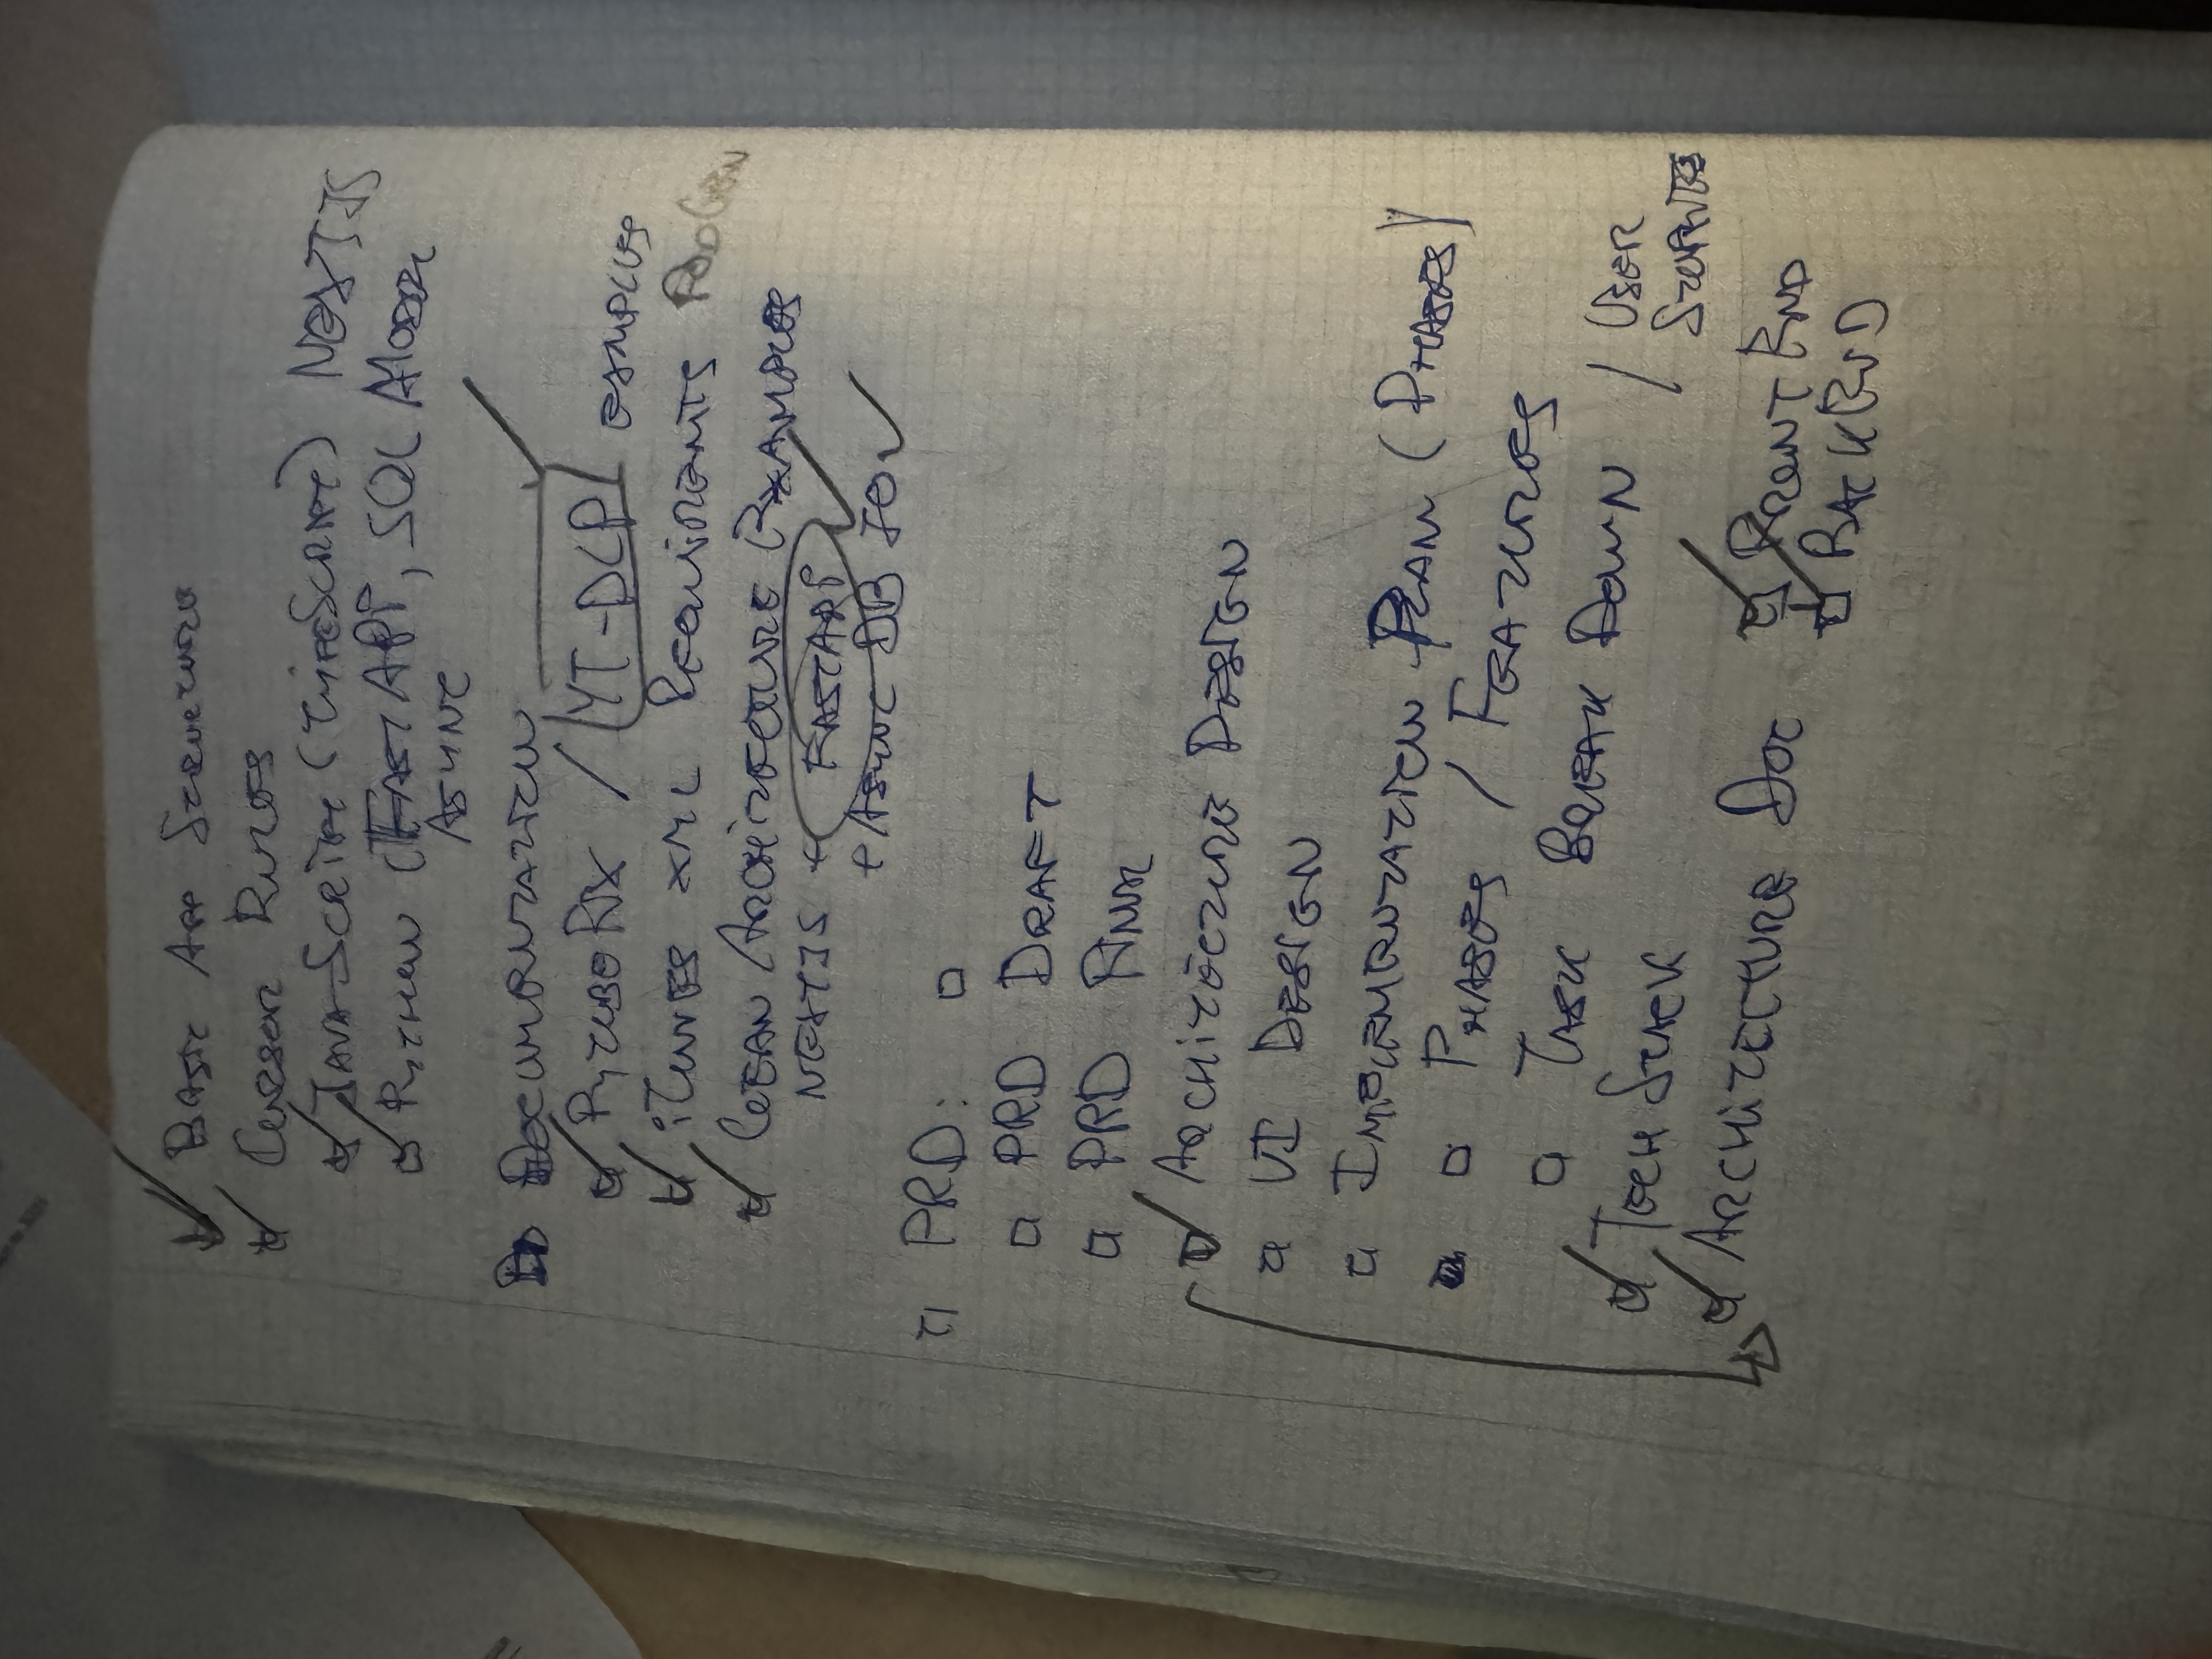 Basic App Structure
Cursor Rules
JavaScript (TypeScript) NextJS
Python (FastAPI, SQL Model
Async
Documentation
PytubeFix / YT-DLP examples
iTunes XML Requirements PodGen
Clean Architecture Examples
NextJS + FastAPI
+ Async DB IO
PRD:
PRD Draft
PRD Final
Architecture Design
UI Design
Implementation Plan (Phases)
Phases / Features
Task Break Down / User
Stories
Tech Stack
Architecture Doc Front End
BackEnd